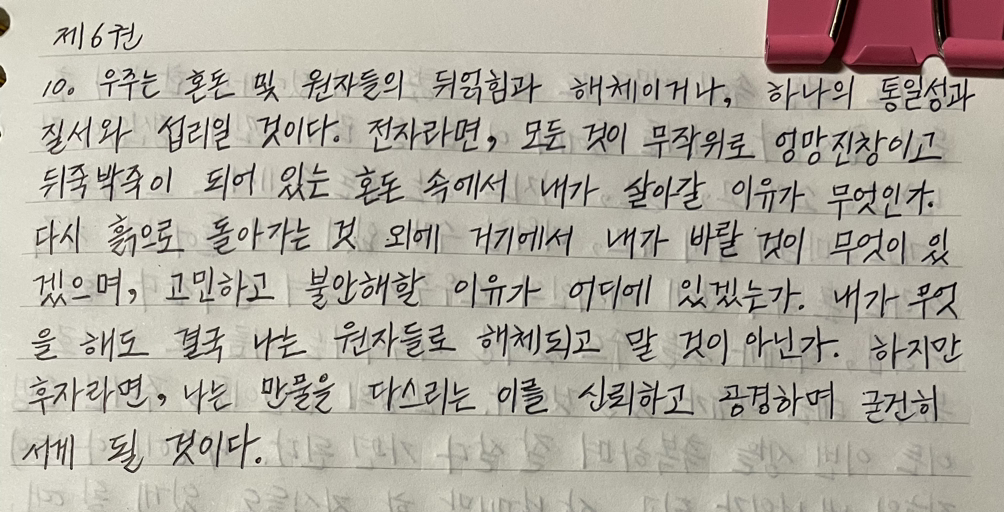 제6권
10. 우주는 혼돈 및 원자들의 뒤얽힘과 해체이거나, 하나의 통일성과
질서와 섭리일 것이다. 전자라면, 모든 것이 무작위로 엉망진창이고
뒤죽박죽이 되어 있는 혼돈 속에서 내가 살아갈 이유가 무엇인가.
다시 흙으로 돌아가는 것 외에 거기에서 내가 바랄 것이 무엇이 있
겠으며, 고민하고 불안해할 이유가 어디에 있겠는가. 내가 무엇
을 해도 결국 나는 원자들로 해체되고 말 것이 아닌가. 하지만
후자라면, 나는 만물을 다스리는 이를 신뢰하고 공경하며 굳건히
서게 될 것이다.